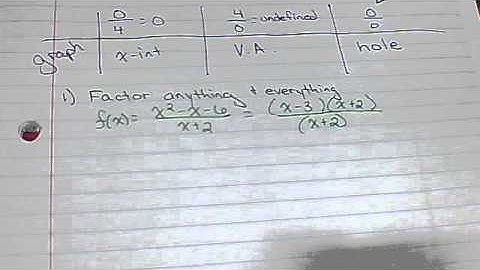 0/4 = 0 4/0 = undefined 0/0
graph x-int V.A. hole
1) Factor anything + everything
f(x)= x²-x-6/x+2 = (x-3)(x+2)/(x+2)